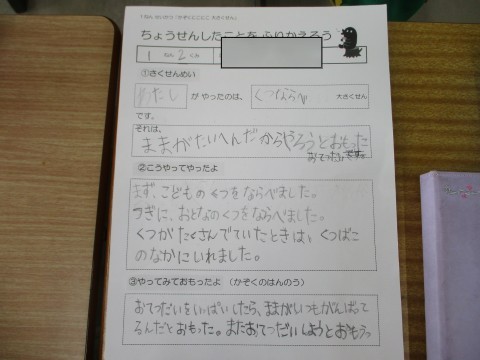 1ねん せいかつ「かぞくにこにこ 大さくせん」
ちょうせんしたことを ふりかえろう
1 ねん 2 くみ
①さくせんめい
わたし が やったのは、 くつならべ 大さくせん
です。
それは、
ままがたいへんだからやろうとおもった
おてつだいです。
②こうやってやったよ
まず、こどものくつをならべました。
つぎに、おとなのくつをならべました。
くつがたくさんでていたときは、くつばこ
のなかにいれました。
③やってみておもったよ (かぞくのはんのう)
おてつだいをいっぱいしたら、ままがいつもがんばって
るんだとおもった。またおてつだいしようとおもう